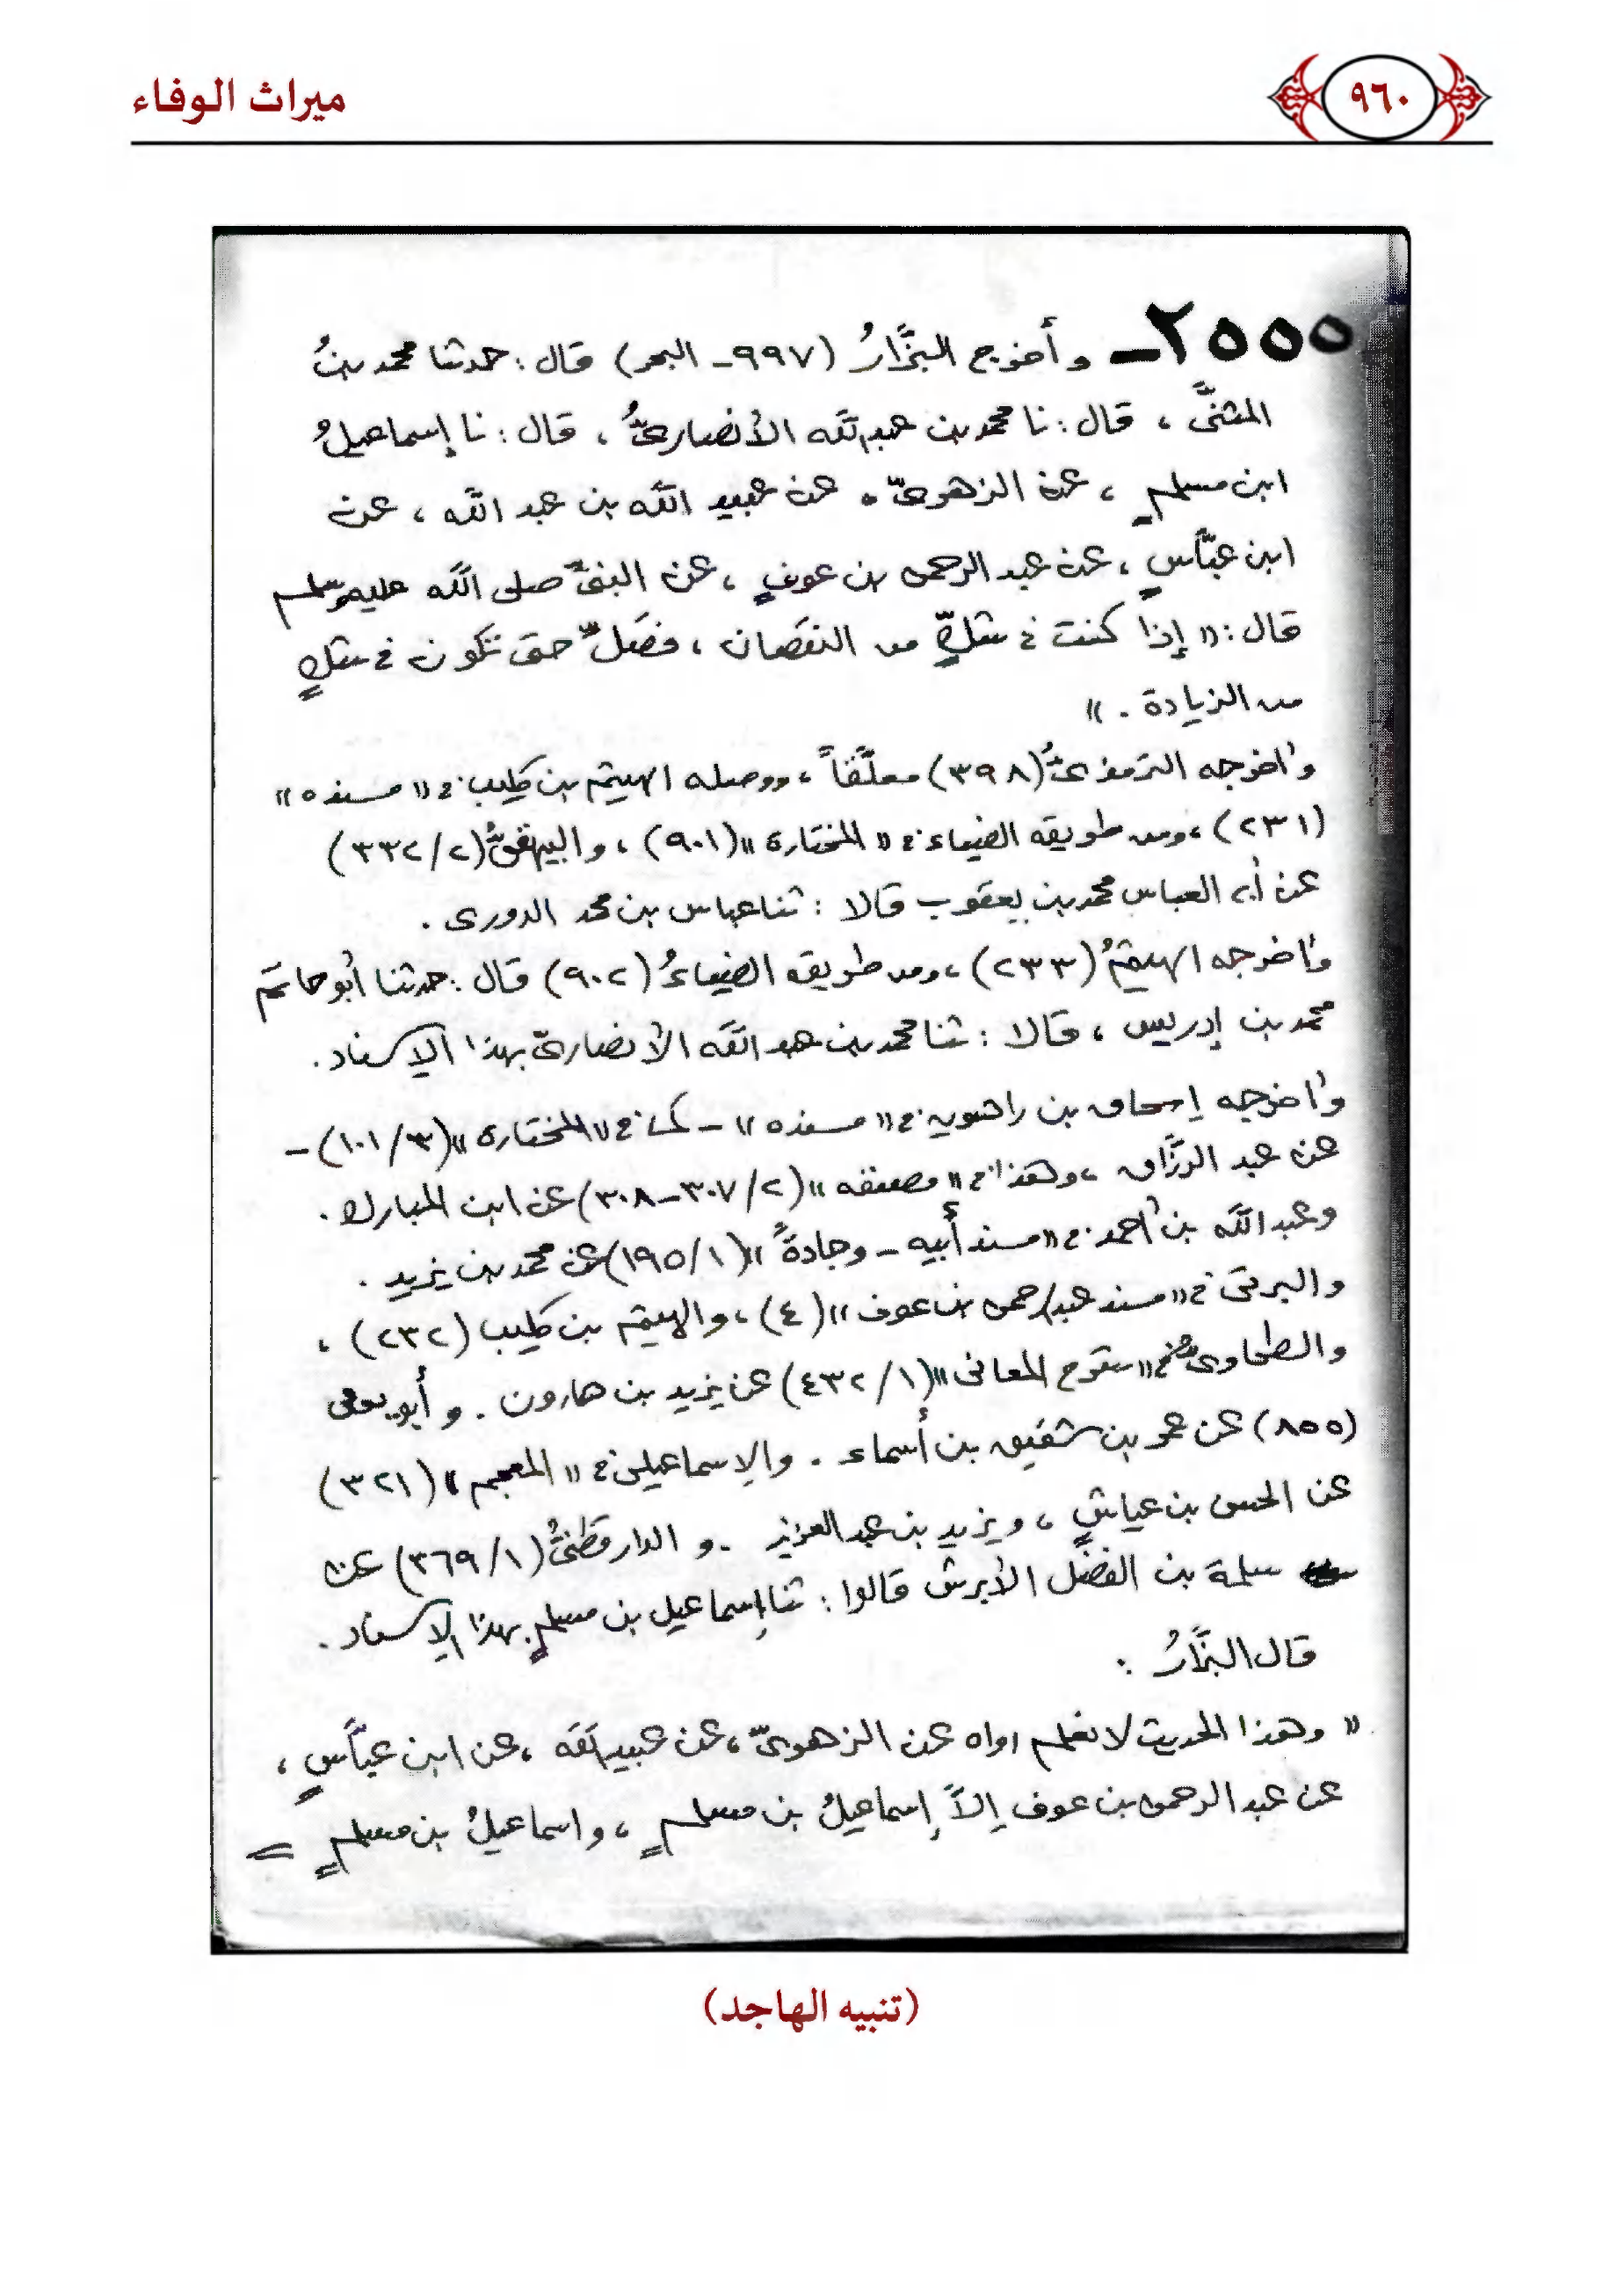 ميراث الوفاء
٩٦٠
٢٥٥٥ - وأخرج البزَّارُ (٩٩٧- البحر) قال: حدثنا محمد بنُ
المثنىَّ ، قال: نا محمد بن عبد الله الأنصاريُّ ، قال: نا إسماعيلُ
ابن مسلمٍ ، عن الزهريّ ، عن عبيد الله بن عبد الله ، عن
ابن عبَّاسٍ ، عن عبد الرحمن بن عوفٍ ، عن النبيِّ صلى الله عليه وسلم
قال: « إذا كنت في شكٍّ من النقصان ، فصَلِّ حتى تكون في شكٍ
من الزيادة . »
وأخرجه الترمذىُّ (٣٩٨) معلَّقاً ، ووصله الهيثم بن كليب في « مسنده »
(٢٣١) ، ومن طريقه الضياء في « المختارة » (٩٠١) ، والبيهقىُّ (٣٣٢/٢)
عن أبي العباس محمد بن يعقوب قالا : ثنا عباس بن محمد الدورى .
وأخرجه الهيثمُ (٢٣٣) ، ومن طريقه الضياءُ (٩٠٢) قال : حدثنا أبو حاتم
محمد بن إدريس ، قالا : ثنا محمد بن عبد الله الأنصاريّ بهذا الإسناد .
وأخرجه إسحاق بن راهويه في « مسنده » - كما في « المختارة » (١٠١/٣) -
عن عبد الرزَّاق ، وهذا في « مصنفه » (٣٠٧/٢-٣٠٨) عن ابن المبارك .
وعبد الله بن أحمد في « مسند أبيه - وجادةً » (١٩٥/١) عن محمد بن يزيد .
والبرتى في « مسند عبد الرحمن بن عوف » (٤) ، والهيثم بن كليب (٢٣٢) ،
والطحاوىُّ في « شرح المعانى » (٤٣٢/١) عن يزيد بن هارون . وأبو يعلى
(٨٥٥) عن عمر بن شقيق بن أسماء . والإسماعيلى في « المعجم » (٣٢١)
عن الحسن بن عياشٍ ، ويزيد بن عبد العزيز . و الدارقطنىُّ (٣٦٩/١) عن
سلمة بن الفضل الأبرش قالوا : ثنا إسماعيل بن مسلمٍ بهذا الإسناد .
قال البزَّارُ :
« وهذا الحديث لا نعلم رواه عن الزهرىّ ، عن عبيد الله ، عن ابن عبَّاسٍ ،
عن عبد الرحمن بن عوف إلاَّ إسماعيلُ بن مسلمٍ ، واسماعيلُ بن مسلمٍ =
(تنبيه الهاجد)